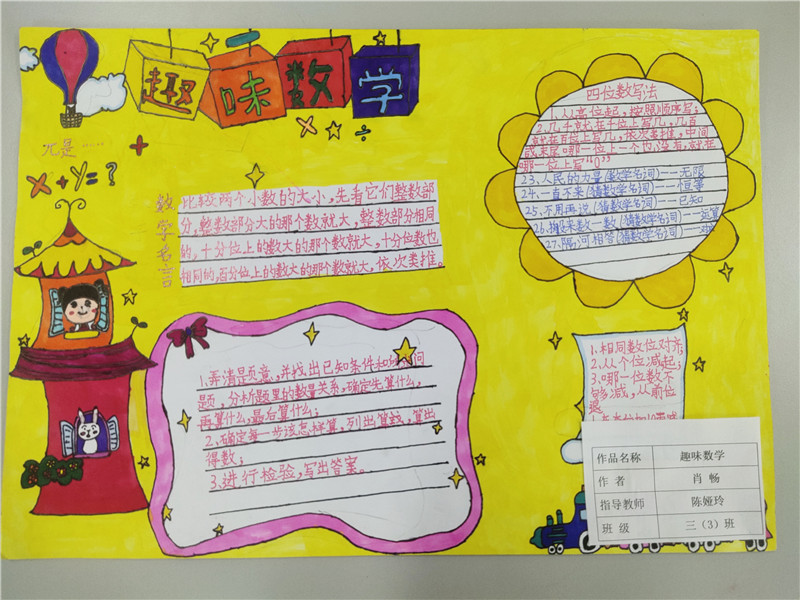 趣味数学
四位数写法
1、从高位起，按照顺序写；
2、几千就在千位上写几，几百
就在百位上写几，依次类推，中间
或末尾哪一位上一个也没有，就在
哪一位上写"0"
23、人民的力量(数学名词)——无限
24、一直不来(猜数学名词)——恒等
25、不用再说(猜数学名词)——已知
26、搬来数一数(猜数学名词)——运算
27、隔河相答(猜数学名词)——对应
÷
+
x+y=?
数学名言
比较两个小数的大小，先看它们整数部
分，整数部分大的那个数就大，整数部分相同
的，十分位上的数大的那个数就大，十分位数也
相同的，百分位上的数大的那个数就大，依次类推。
1、弄清题意，并找出已知条件和所求问
题，分析题里的数量关系，确定先算什么，
再算什么，最后算什么；
2、确定每一步该怎样算，列出算式，算出
得数；
3、进行检验，写出答案。
1、相同数位对齐
2、从个位减起；
3、哪一位数不
够减，从前位
退
作品名称 趣味数学
作者 肖畅
指导教师 陈娅玲
班级 三（3）班